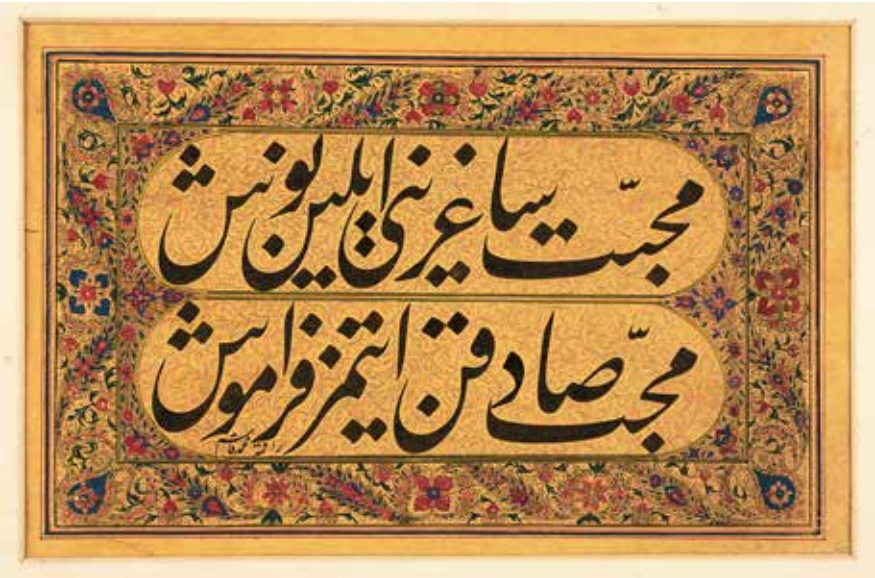 محبّت ساغرنی ایلین نوش
محبّ صادقن ایتمز فراموش